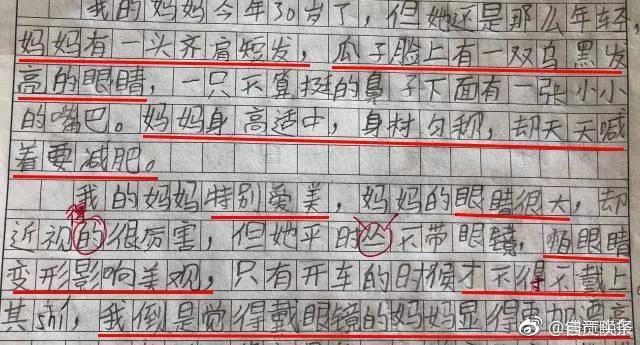 我的妈妈今年30岁了，但她还是那么年轻，
妈妈有一头齐肩短发，瓜子脸上有一双乌黑发
高的眼睛，一只不算挺的鼻子下面有一张小小
的嘴巴。妈妈身高适中，身材匀称，却天天喊
着要减肥。
我的妈妈特别爱美，妈妈的眼睛很大，却
得
近视的很厉害，但她平时从不带眼镜，怕眼睛
变形影响美观，只有开车的时候才不得不戴上
其shi，我倒是觉得戴眼镜的妈妈显得更加